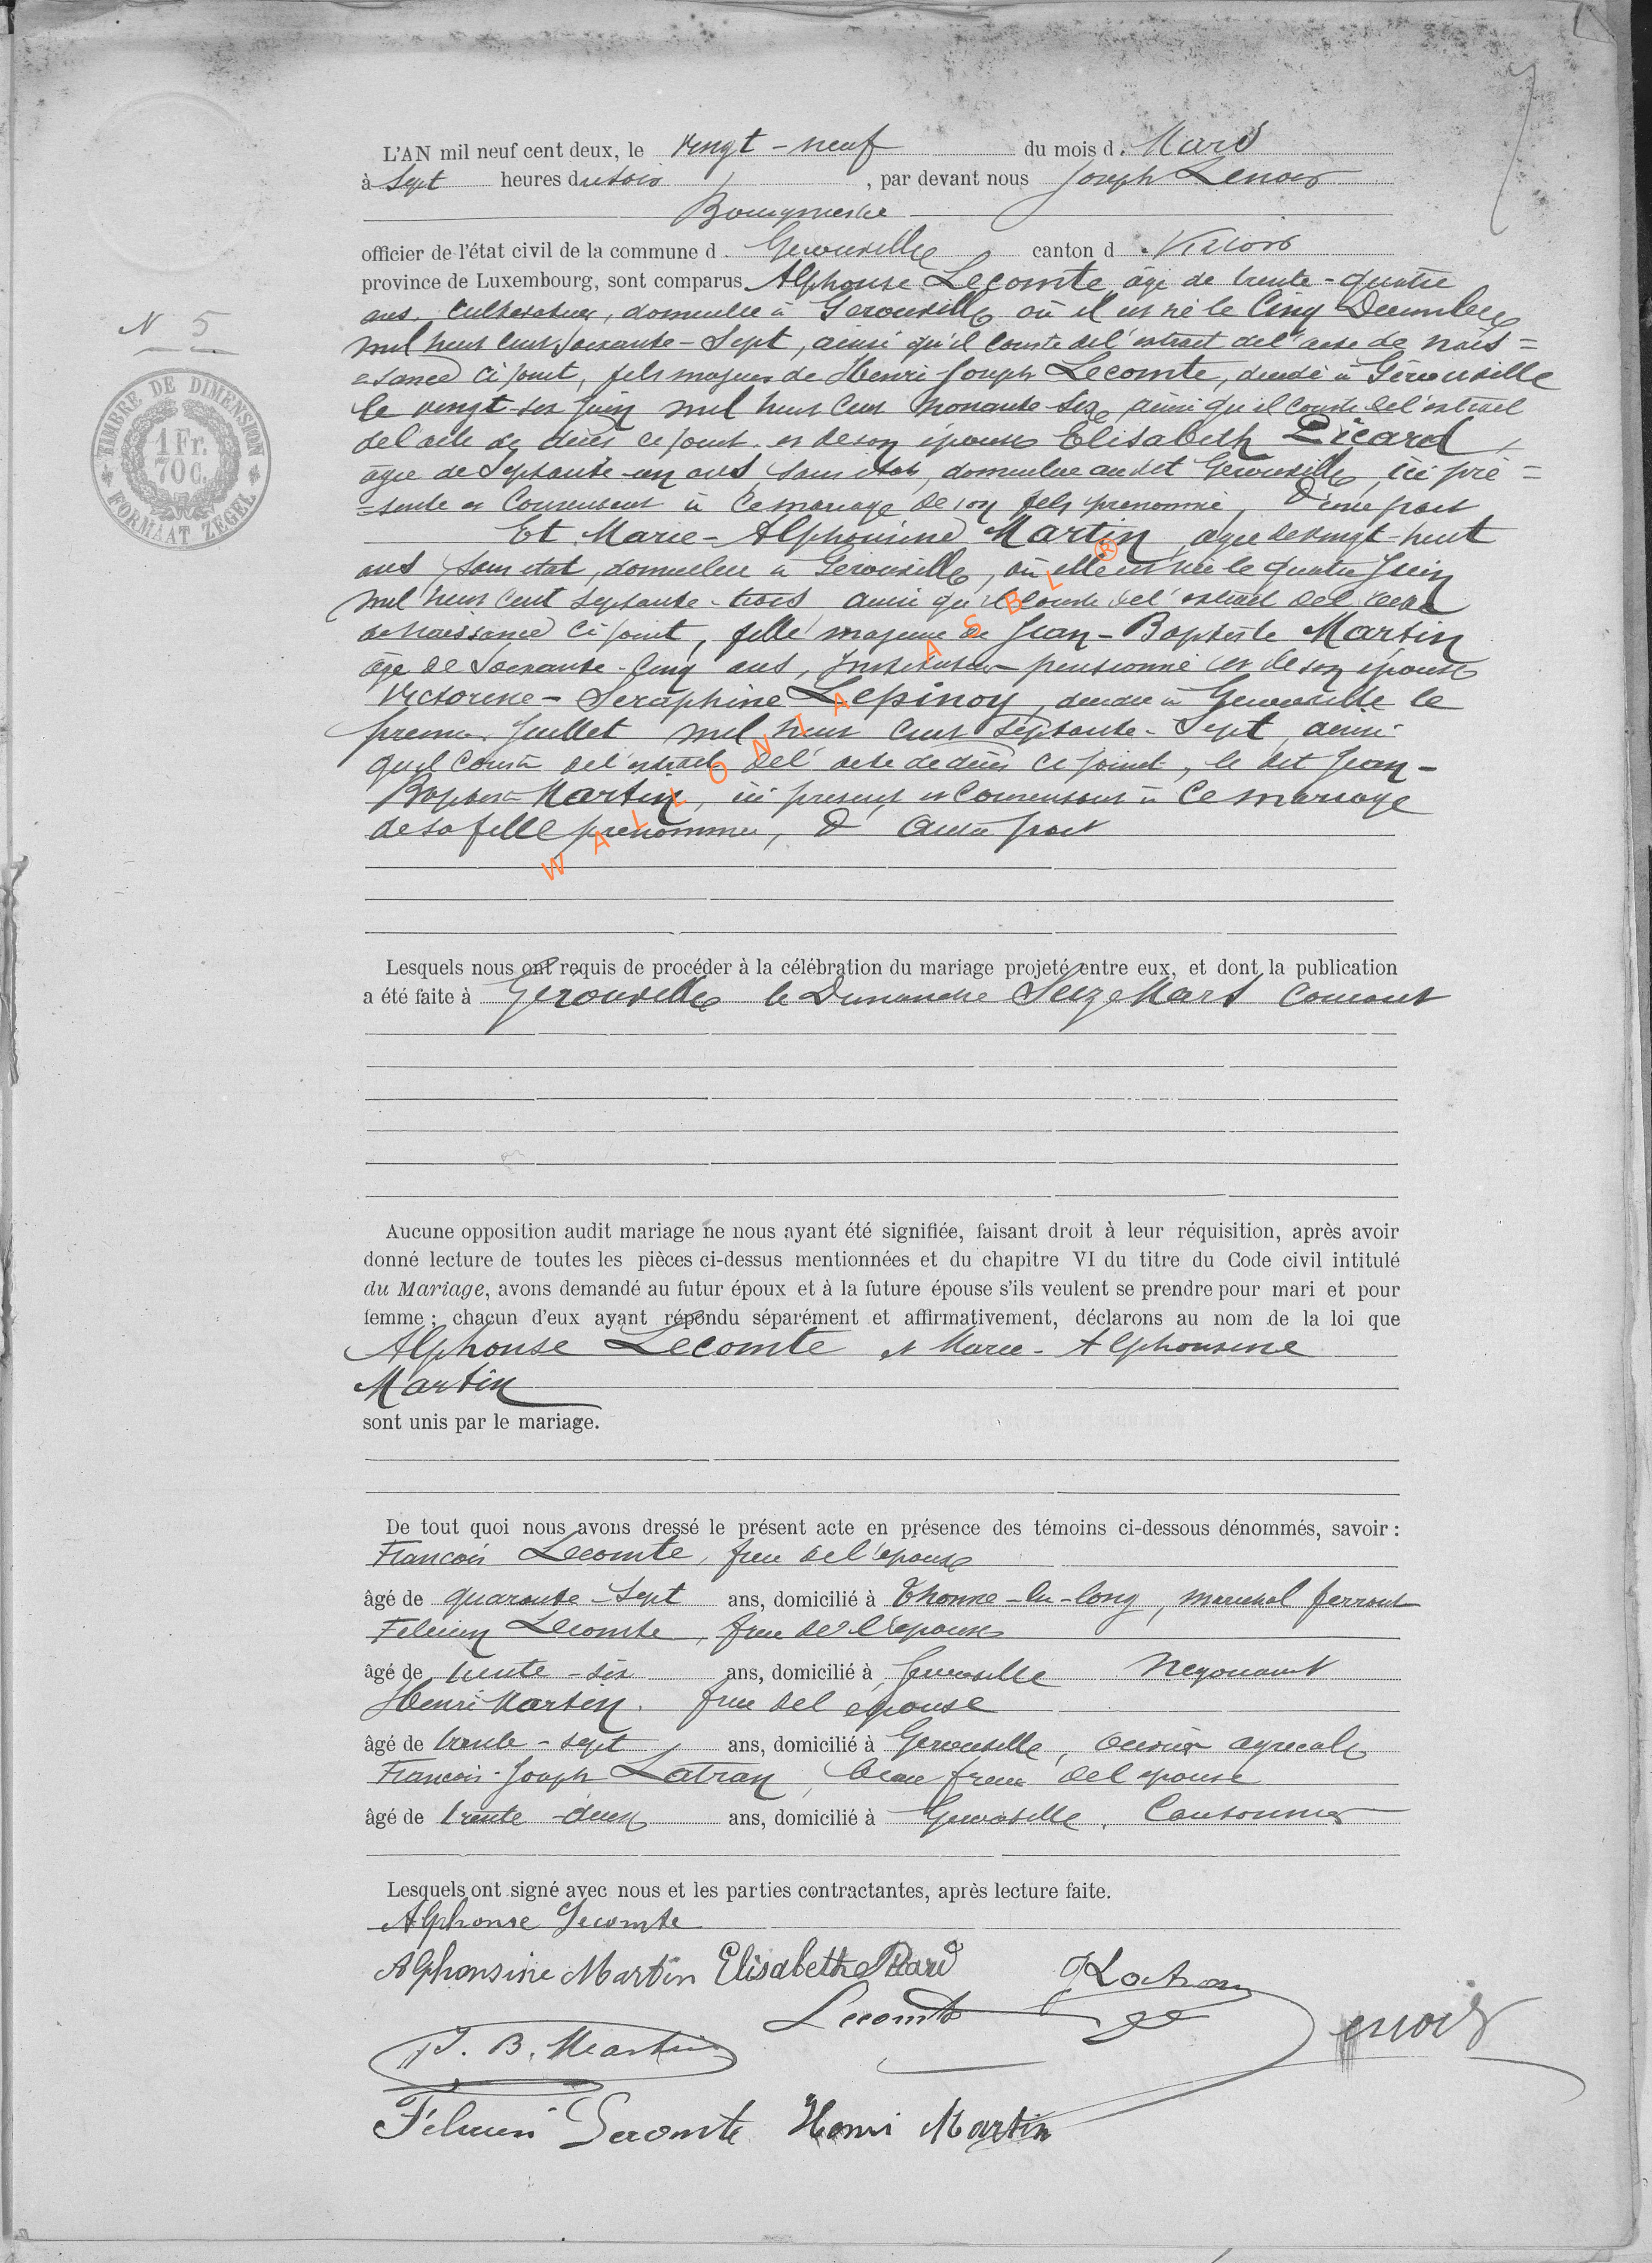 L'AN mil neuf cent deux, le vingt-neuf du mois d. Mars
à Sept heures du soir, par devant nous Joseph Lenoir
Bourgmestre
officier de l'état civil de la commune d. Gerouville canton d. Virton
province de Luxembourg, sont comparus Alphonse Lecomte, âgé de trente-quatre
ans, cultivateur, domicilié à Gerouville où il est né le Cinq Decembre
N 5
mil huit cent soixante-Sept, ainsi qu'il conste de l'extrait de l'acte de nais=
=sance ci joint, fils majeur de Henri Joseph Lecomte, décédé à Gérouville
le vingt-six Juin mil huit cent nonante-six ainsi qu'il conste de l'extrait
de l'acte de décès ci joint, et de son épouse Elisabeth Picard,
TIMBRE DE DIMENSION
1 Fr. 70 C.
FORMAAT ZEGEL
âgée de Septante-un ans, sans état, domiciliée au dit Gerouville, ici pré=
=sente et Consentant à ce mariage de son fils prenommé, D'une part
Et Marie-Alphonsine Martin, agée de vingt-huit
ans, sans etat, domiciliée à Gerouville, où elle est née le quatre Juin
mil huit cent septante-trois ainsi qu'il conste de l'extrait de l'acte
de naissance ci joint, fille majeure de Jean-Baptiste Martin
âgé de Soixante-Cinq ans, Instituteur pensionné et de son épouse
Victorine-Seraphine Lepinoy, décédée à Gerouville le
premier Juillet mil huit cent septante-Sept, ainsi
qu'il conste de l'extrait de l'acte de décès ci joint, le dit Jean-
Baptiste Martin, ici present et Consentant à ce mariage
de sa fille prenommée, D'autre part
WALLONIA ASBL ®
Lesquels nous ont requis de procéder à la célébration du mariage projeté entre eux, et dont la publication
a été faite à Gerouville le Dimanche Seize Mars Courant
Aucune opposition audit mariage ne nous ayant été signifiée, faisant droit à leur réquisition, après avoir
donné lecture de toutes les pièces ci-dessus mentionnées et du chapitre VI du titre du Code civil intitulé
du Mariage, avons demandé au futur époux et à la future épouse s'ils veulent se prendre pour mari et pour
femme ; chacun d'eux ayant répondu séparément et affirmativement, déclarons au nom de la loi que
Alphonse Lecomte et Marie-Alphonsine
Martin
sont unis par le mariage.
De tout quoi nous avons dressé le présent acte en présence des témoins ci-dessous dénommés, savoir :
Francois Lecomte, frere de l'epoux
âgé de quarante-Sept ans, domicilié à Thonne-la-long, marechal ferrant
Felicien Lecomte, frere de l'epoux
âgé de trente-six ans, domicilié à Gerouville Negociant
Henri Martin, frere de l'epouse
âgé de trente-sept ans, domicilié à Gerouville, ouvrier agricole
Francois-Joseph Latran, beau frere de l'epouse
âgé de trente-deux ans, domicilié à Gerouville, Cantonnier
Lesquels ont signé avec nous et les parties contractantes, après lecture faite.
Alphonse Lecomte
Alphonsine Martin Elisabeth Picard J Latran
Lecomte Lenoir
J. B. Martin
Félicien Lecomte Henri Martin